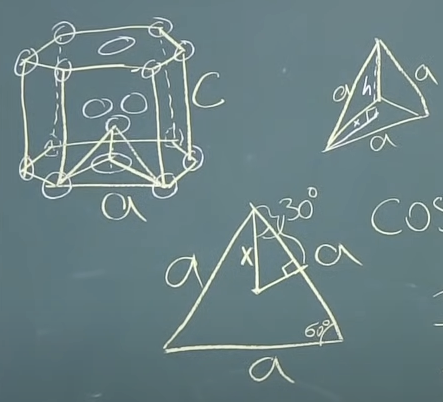 c
a
a
h
a
x
a
30°
x
a
a
60°
a
cos